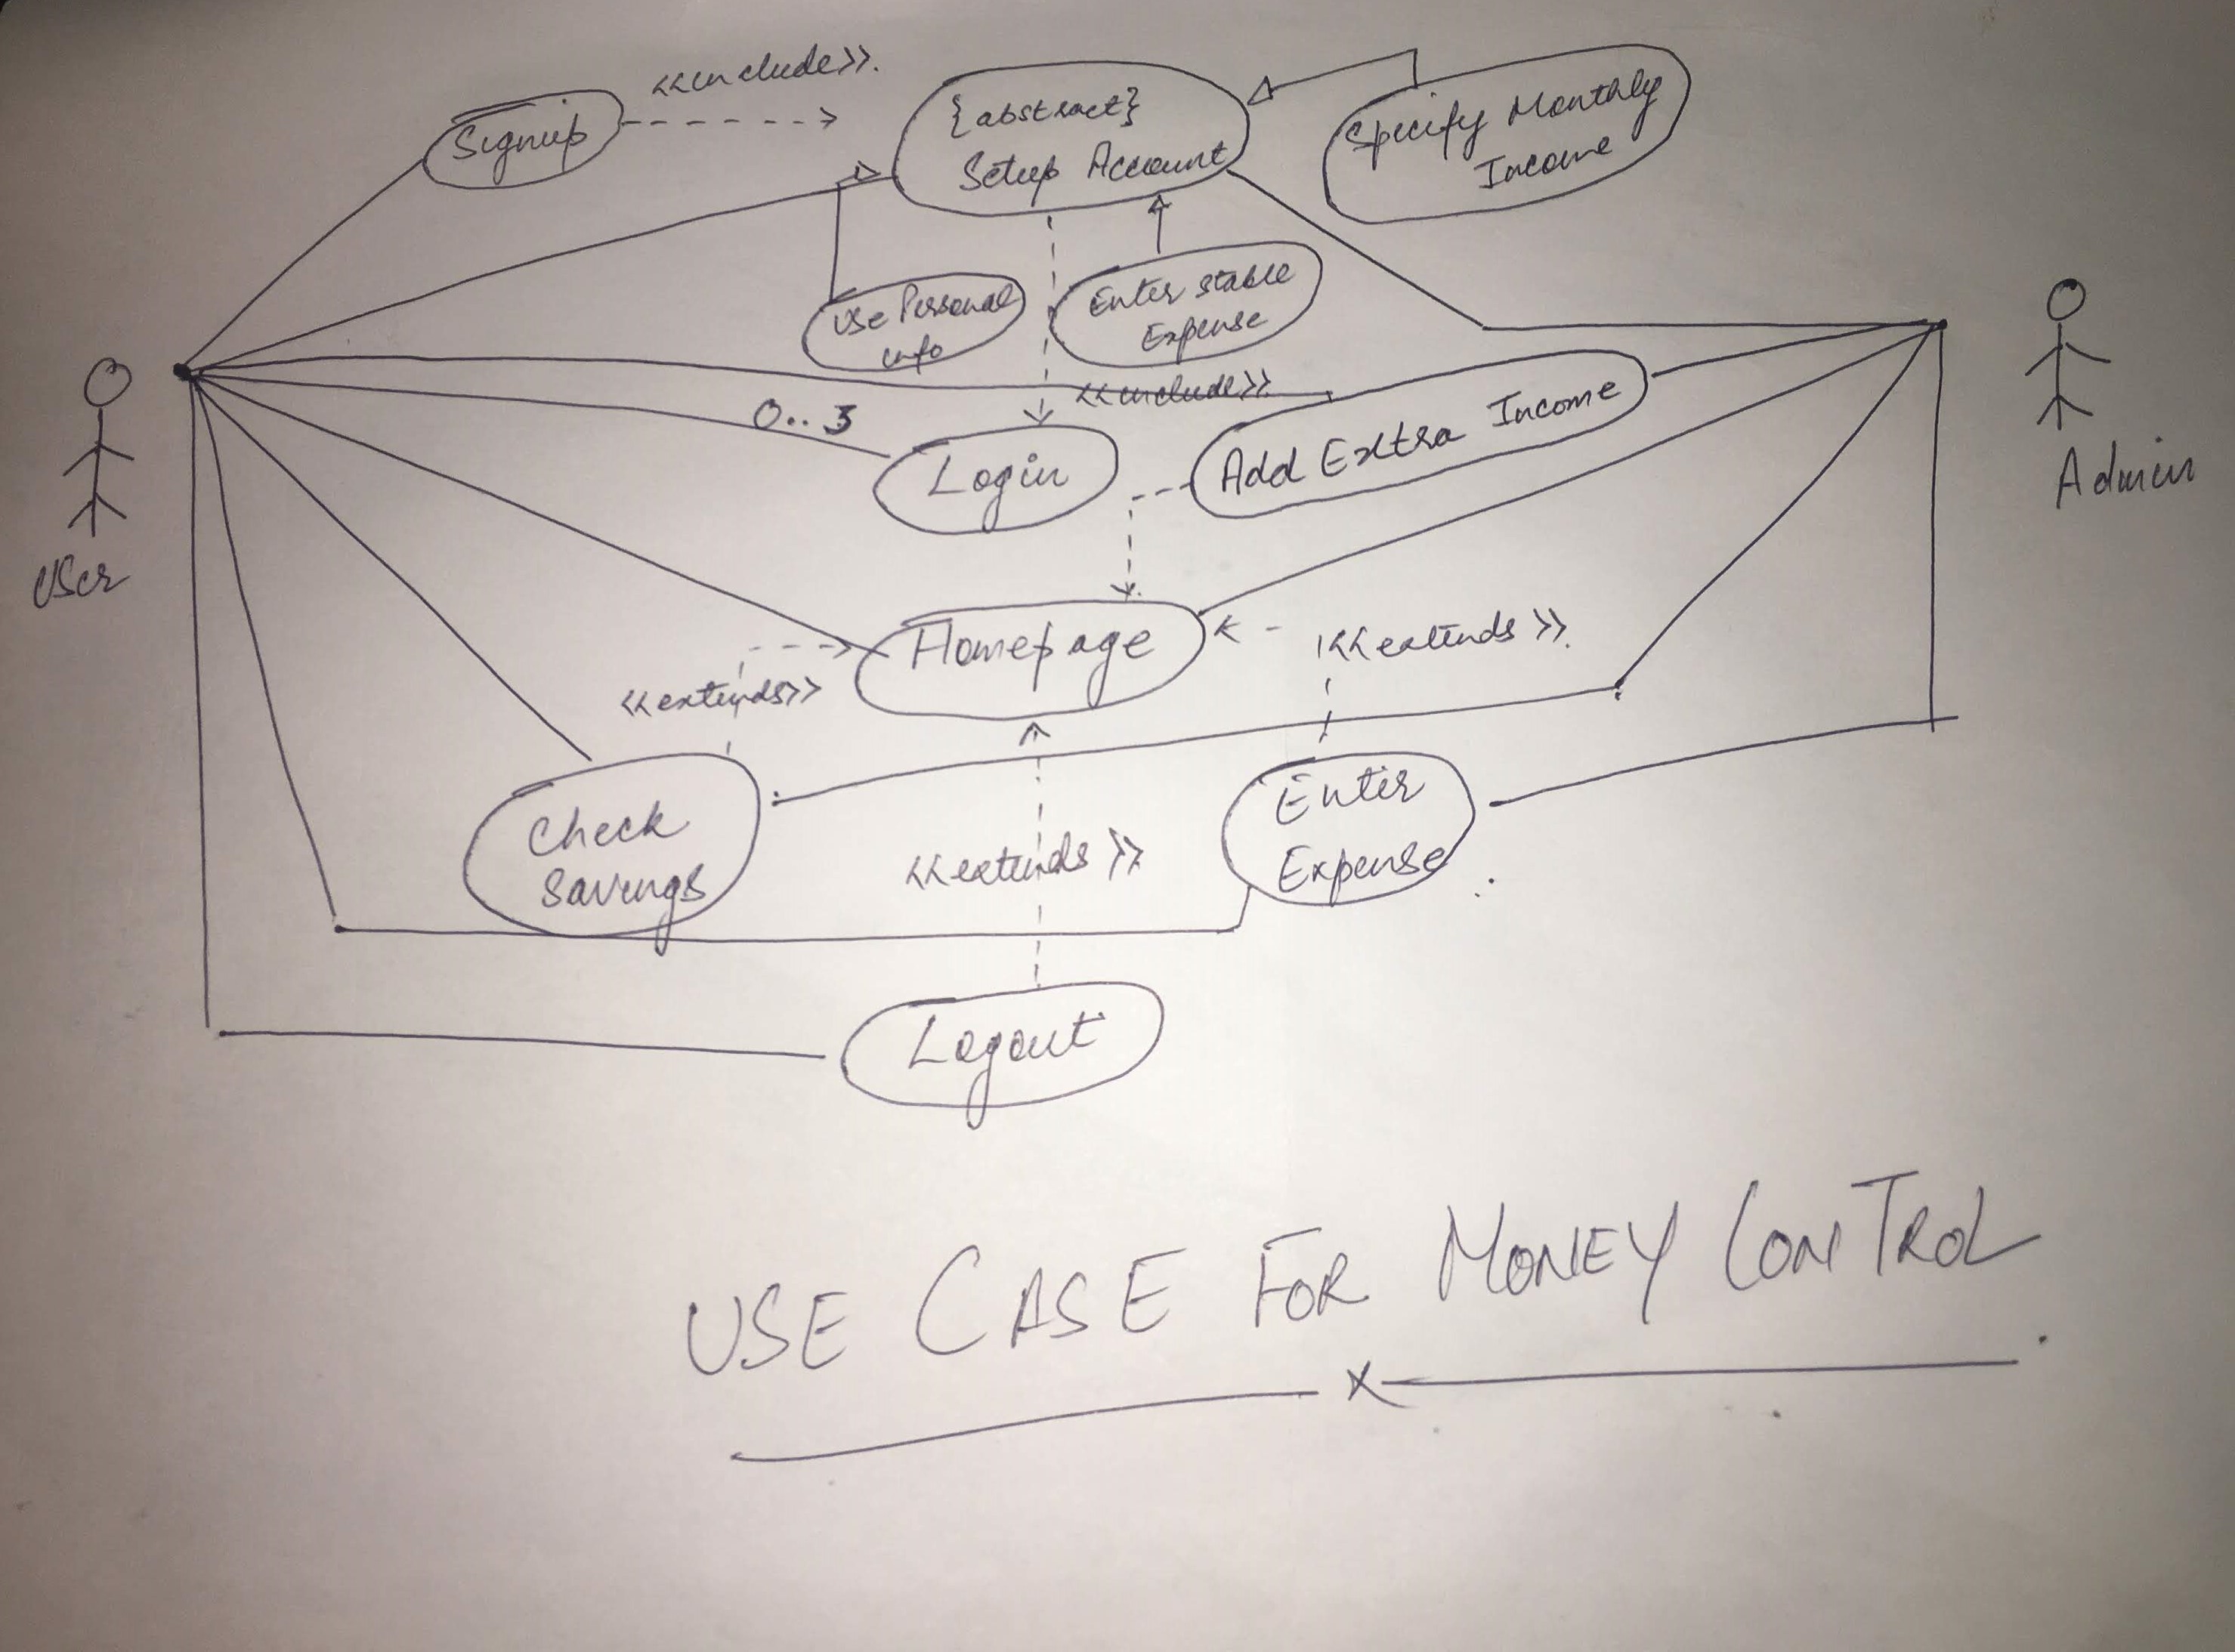 <<include>>.
Signup
{abstract}
Setup Account
Specify Monthly
Income
Use Personal
info
Enter Stable
Expense
<<include>>
0..3
Login
Add Extra Income
User
Admin
Homepage
<<extends>>
<<extends>>.
Check
Savings
<<extends>>
Enter
Expense
Logout
USE CASE FOR MONEY CONTROL